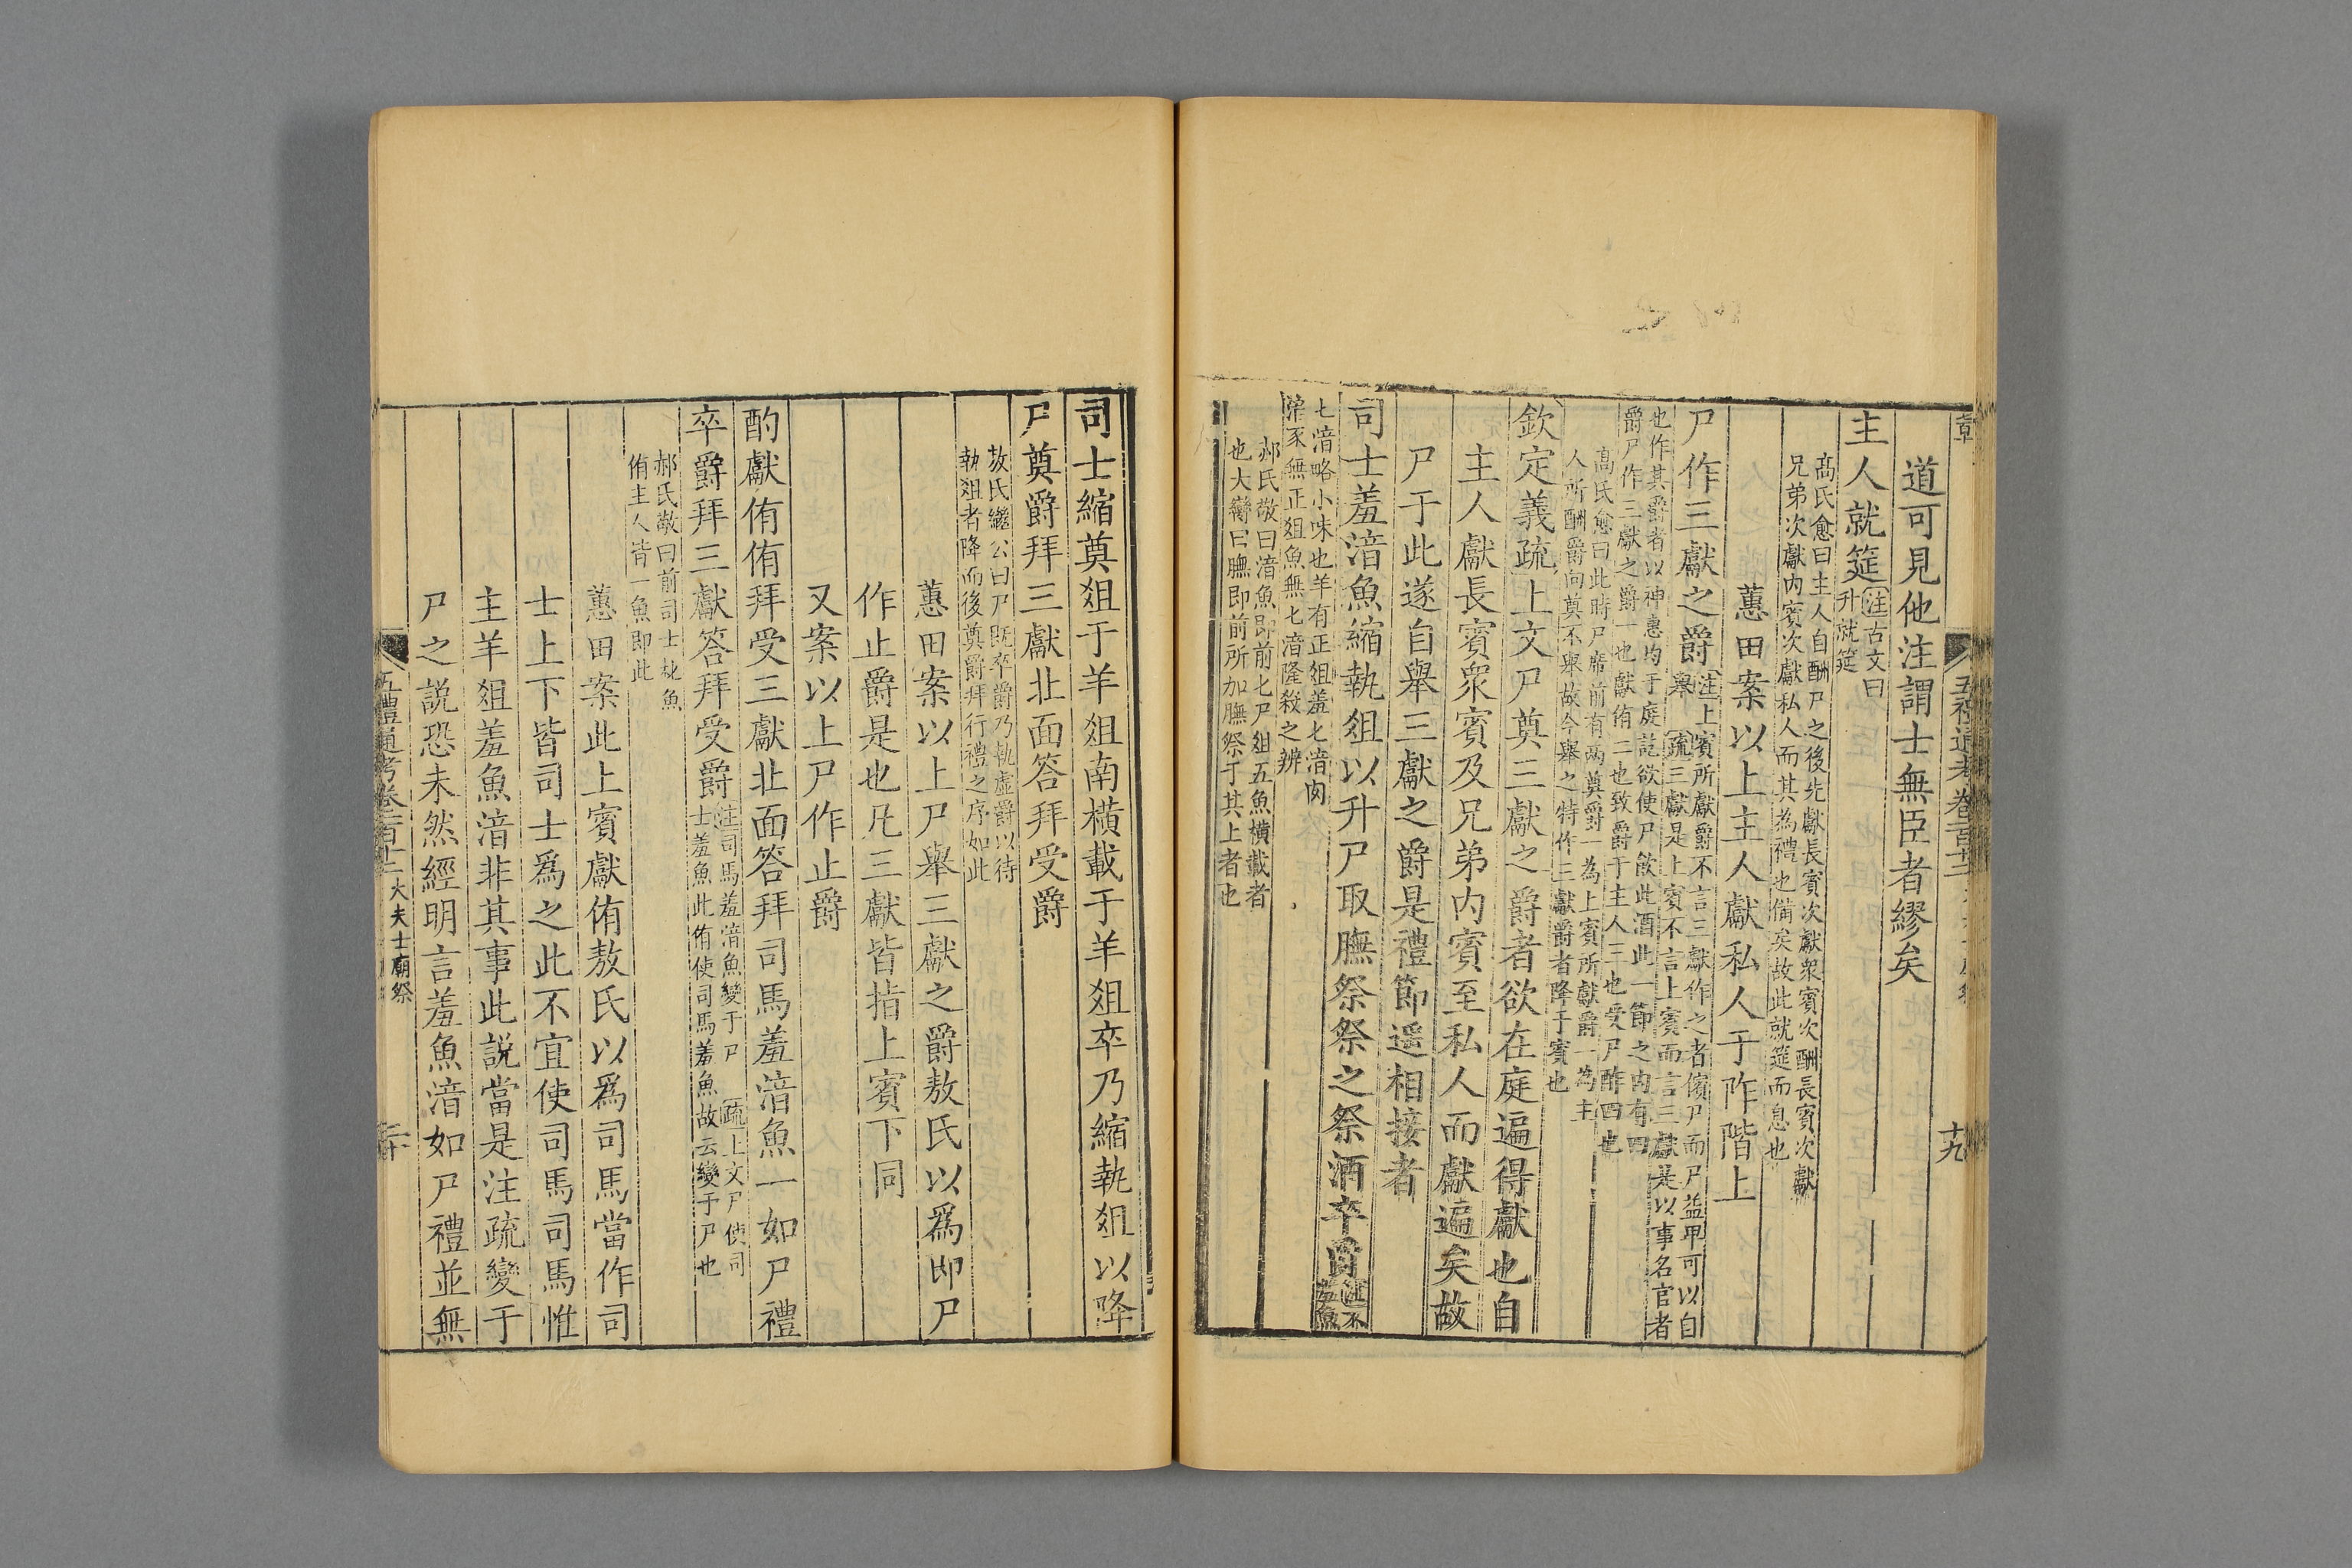 道可見他注謂士無臣者繆矣
主人就筵
注古文曰
升就筵
高氏愈曰主人自酬尸之後先獻長賓次獻衆賓次酬長賓次獻
兄弟次獻内賓次獻私人而其為禮也備矣故此就筵而息也
蕙田案以上主人獻私人于阼階上
尸作三獻之爵
注上賓所獻爵不言三獻作之者儐尸而尸益卑可以自
舉
疏三獻是上賓不言上賓而言三獻是以事名官者
也作其爵者以神惠均于庭訖欲使尸飲此酒此一節之内有四
爵尸作三獻之爵一也獻侑二也致爵于主人三也受尸酢四也
高氏愈曰此時尸席前有兩奠爵一為上賓所獻爵一為主
人所酬爵向奠不舉故今舉之特作三獻爵者降于賓也
欽定義疏上文尸奠三獻之爵者欲在庭遍得獻也自
主人獻長賓衆賓及兄弟内賓至私人而獻遍矣故
尸于此遂自舉三獻之爵是禮節遥相接者
司士羞湆魚縮執俎以升尸取膴祭祭之祭酒卒爵
注不
羞魚
匕湆略小味也羊有正俎羞匕湆肉
湆豕無正俎魚無匕湆隆殺之辨
郝氏敬曰湆魚即前七尸俎五魚横載者
也大臠曰膴即前所加膴祭于其上者也
十九
司士縮奠俎于羊俎南横載于羊俎卒乃縮執俎以降
尸奠爵拜三獻北面答拜受爵
敖氏繼公曰尸既卒爵乃執虚爵以待
執俎者降而後奠爵拜行禮之序如此
蕙田案以上尸舉三獻之爵敖氏以爲即尸
作止爵是也凡三獻皆指上賓下同
又案以上尸作止爵
酌獻侑侑拜受三獻北面答拜司馬羞湆魚一如尸禮
卒爵拜三獻答拜受爵
注司馬羞湆魚變于尸 疏上文尸使司
士羞魚此侑使司馬羞魚故云變于尸也
郝氏敬曰前司士朼魚
侑主人皆一魚即此
蕙田案此上賓獻侑敖氏以爲司馬當作司
士上下皆司士爲之此不宜使司馬司馬惟
主羊俎羞魚湆非其事此説當是注疏變于
尸之説恐未然經明言羞魚湆如尸禮並無
五禮通考卷一百十一 大夫士廟祭
二十